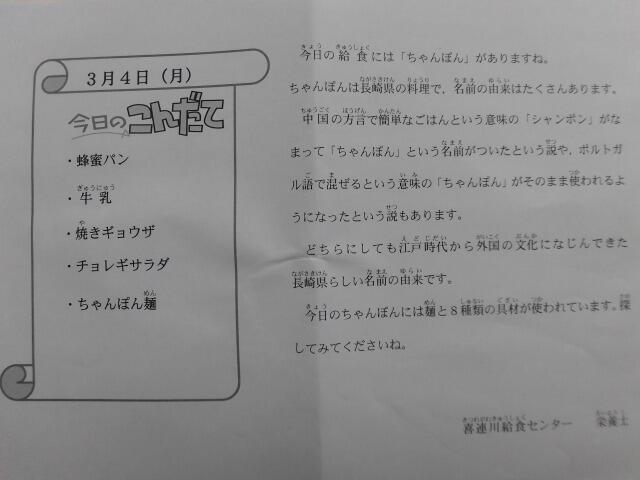 3月4日（月）
今日のこんだて
・蜂蜜パン
・牛乳
・焼きギョウザ
・チョレギサラダ
・ちゃんぽん麺
今日の給食には「ちゃんぽん」がありますね。
ちゃんぽんは長崎県の料理で，名前の由来はたくさんあります。
中国の方言で簡単なごはんという意味の「シャンポン」がな
まって「ちゃんぽん」という名前がついたという説や，ポルトガ
ル語で混ぜるという意味の「ちゃんぽん」がそのまま使われるよ
うになったという説もあります。
どちらにしても江戸時代から外国の文化になじんできた
長崎県らしい名前の由来です。
今日のちゃんぽんには麺と８種類の具材が使われています。探
してみてくださいね。
喜連川給食センター　栄養士